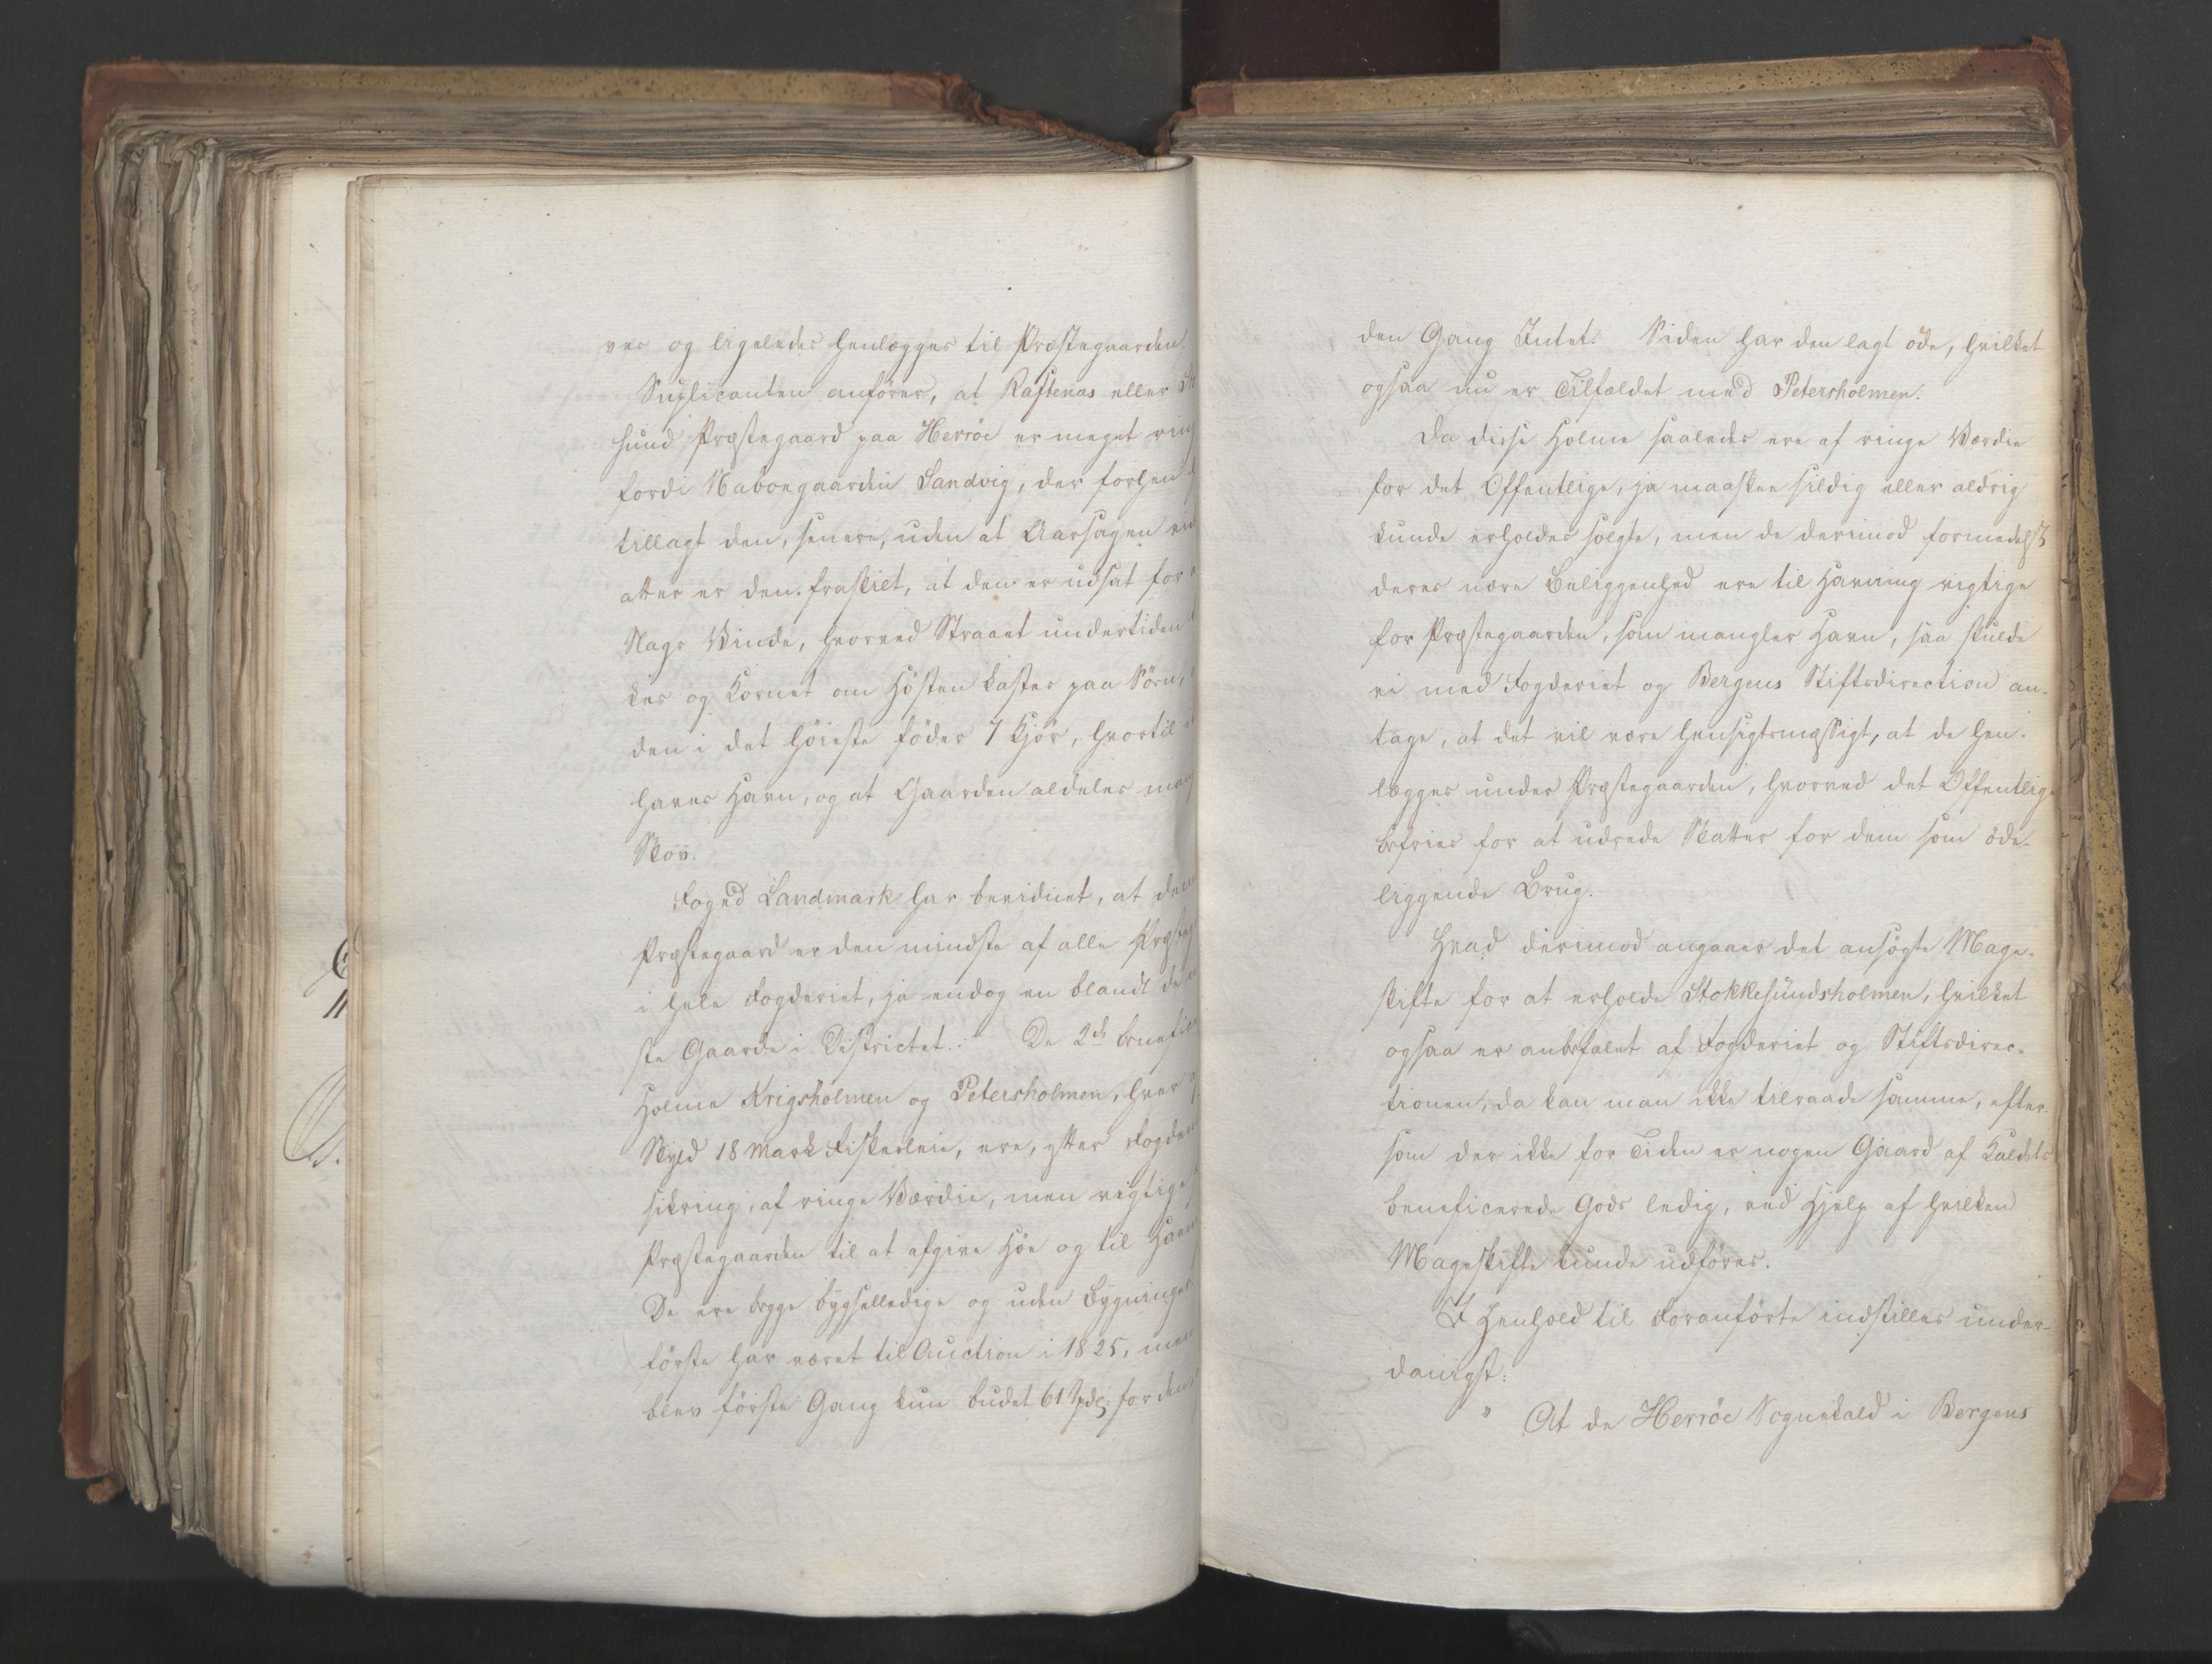 ves og ligeledes henlægges til Præstegaarden.
Suplicanten anfører, at Rastenæs eller
sund Præstegaard paa Herröe er meget
fordi Nabogaarden Sandvig, der forhen
tillagt den, senere, uden at Aarsagen
atter er den fraskilt, at den er udsat for
Slags Vinde, hvorved Straaet undertiden
kes og Kornet om Hösten kastes paa Söen,
den i det höieste föder 7 Kjör, hvortil
haves Havn, og at Gaarden aldeles
Skov.
Foged Landmark har bevidnet, at
Præstegaard er den mindste af alle
i hele Fogderiet, ja endog en blandt de
ste Gaarde i Districtet. De 2de
Holme Krigsholmen og Petersholmen, hver
Skyld 18 Mark Fiskerleie, ere, efter
sikring, af ringe Værdie, men vigtige
Præstegaarden til at afgive Höe og til
De ere begge bygselledige og uden Bygninger
förste har været til Auction i 1825, men
blev förste Gang kun budet 61 Spd. for den
C
den Gang Intet. Siden har den lagt öde, hvilket
ogsaa nu er Tilfældet med Petersholmen.
Da disse Holme saaledes ere af ringe Værdie
for det Offentlige, ja maaskee sildig eller aldrig
kunde erholdes solgte, men de derimod formedelst
deres nære Beliggenhed ere til Havning vigtige
for Præstegaarden, som mangler Havn, saa skulde
vi med Fogderiet og Bergens Stiftsdirection an-
tage, at det vil være hensigtsmæssigt, at de hen-
lægges under Præstegaarden, hvorved det Offentlige
befries for at udrede Skatter for dem som öde-
liggende Brug.
Hvad derimod angaaer det ansögte Mage-
skifte for at erholde Stokkesundsholmen, hvilket
ogsaa er anbefalet af Fogderiet og Stiftsdirec-
tionen, da kan man ikke tilraade samme, efter-
som der ikke for Tiden er nogen Gaard af Kaldets
beneficerede Gods ledig, ved Hjelp af hvilken
Mageskifte kunde udföres.
I Henhold til Foranförte indstilles under-
danigst:
" At de Herröe Sognekald i Bergens